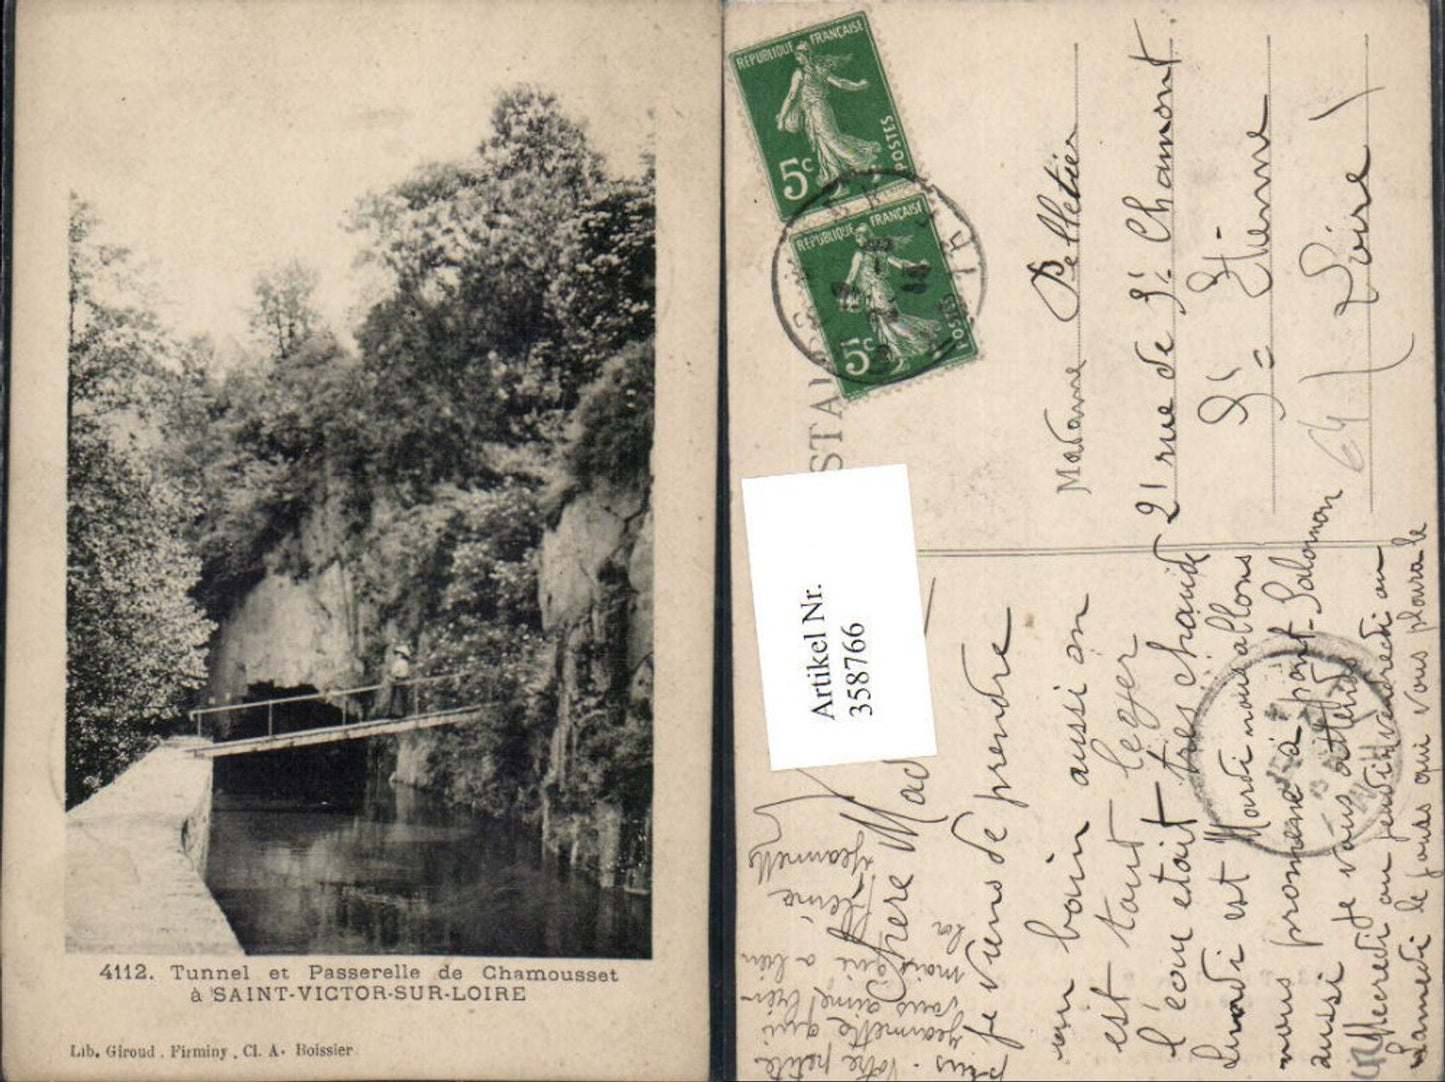 4112. Tunnel et Passerelle de Chamousset
à SAINT-VICTOR-SUR-LOIRE
Lib. Giroud. Firminy. Cl. A. Boissier
REPUBLIQUE FRANÇAISE
5c POSTES
REPUBLIQUE FRANÇAISE
5c POSTES
Artikel Nr.
358766
Madame Pelletier
21 rue de St Chamont
St-Etienne
(Loire)
Chere Mad
je viens de prendre
un bain aussi on
est tout leger
l'eau etait tres chaude
Lundi est Mardi nous allons
nous promené à pont-Salomon
aussi je vous attends
Mecredi au jeudi vendredi ou
Samedi le jours qui vous plaira le
plus. Votre petite
Jeannette qui
vous aime bien
mais qui a bien
la flême
Jeannette